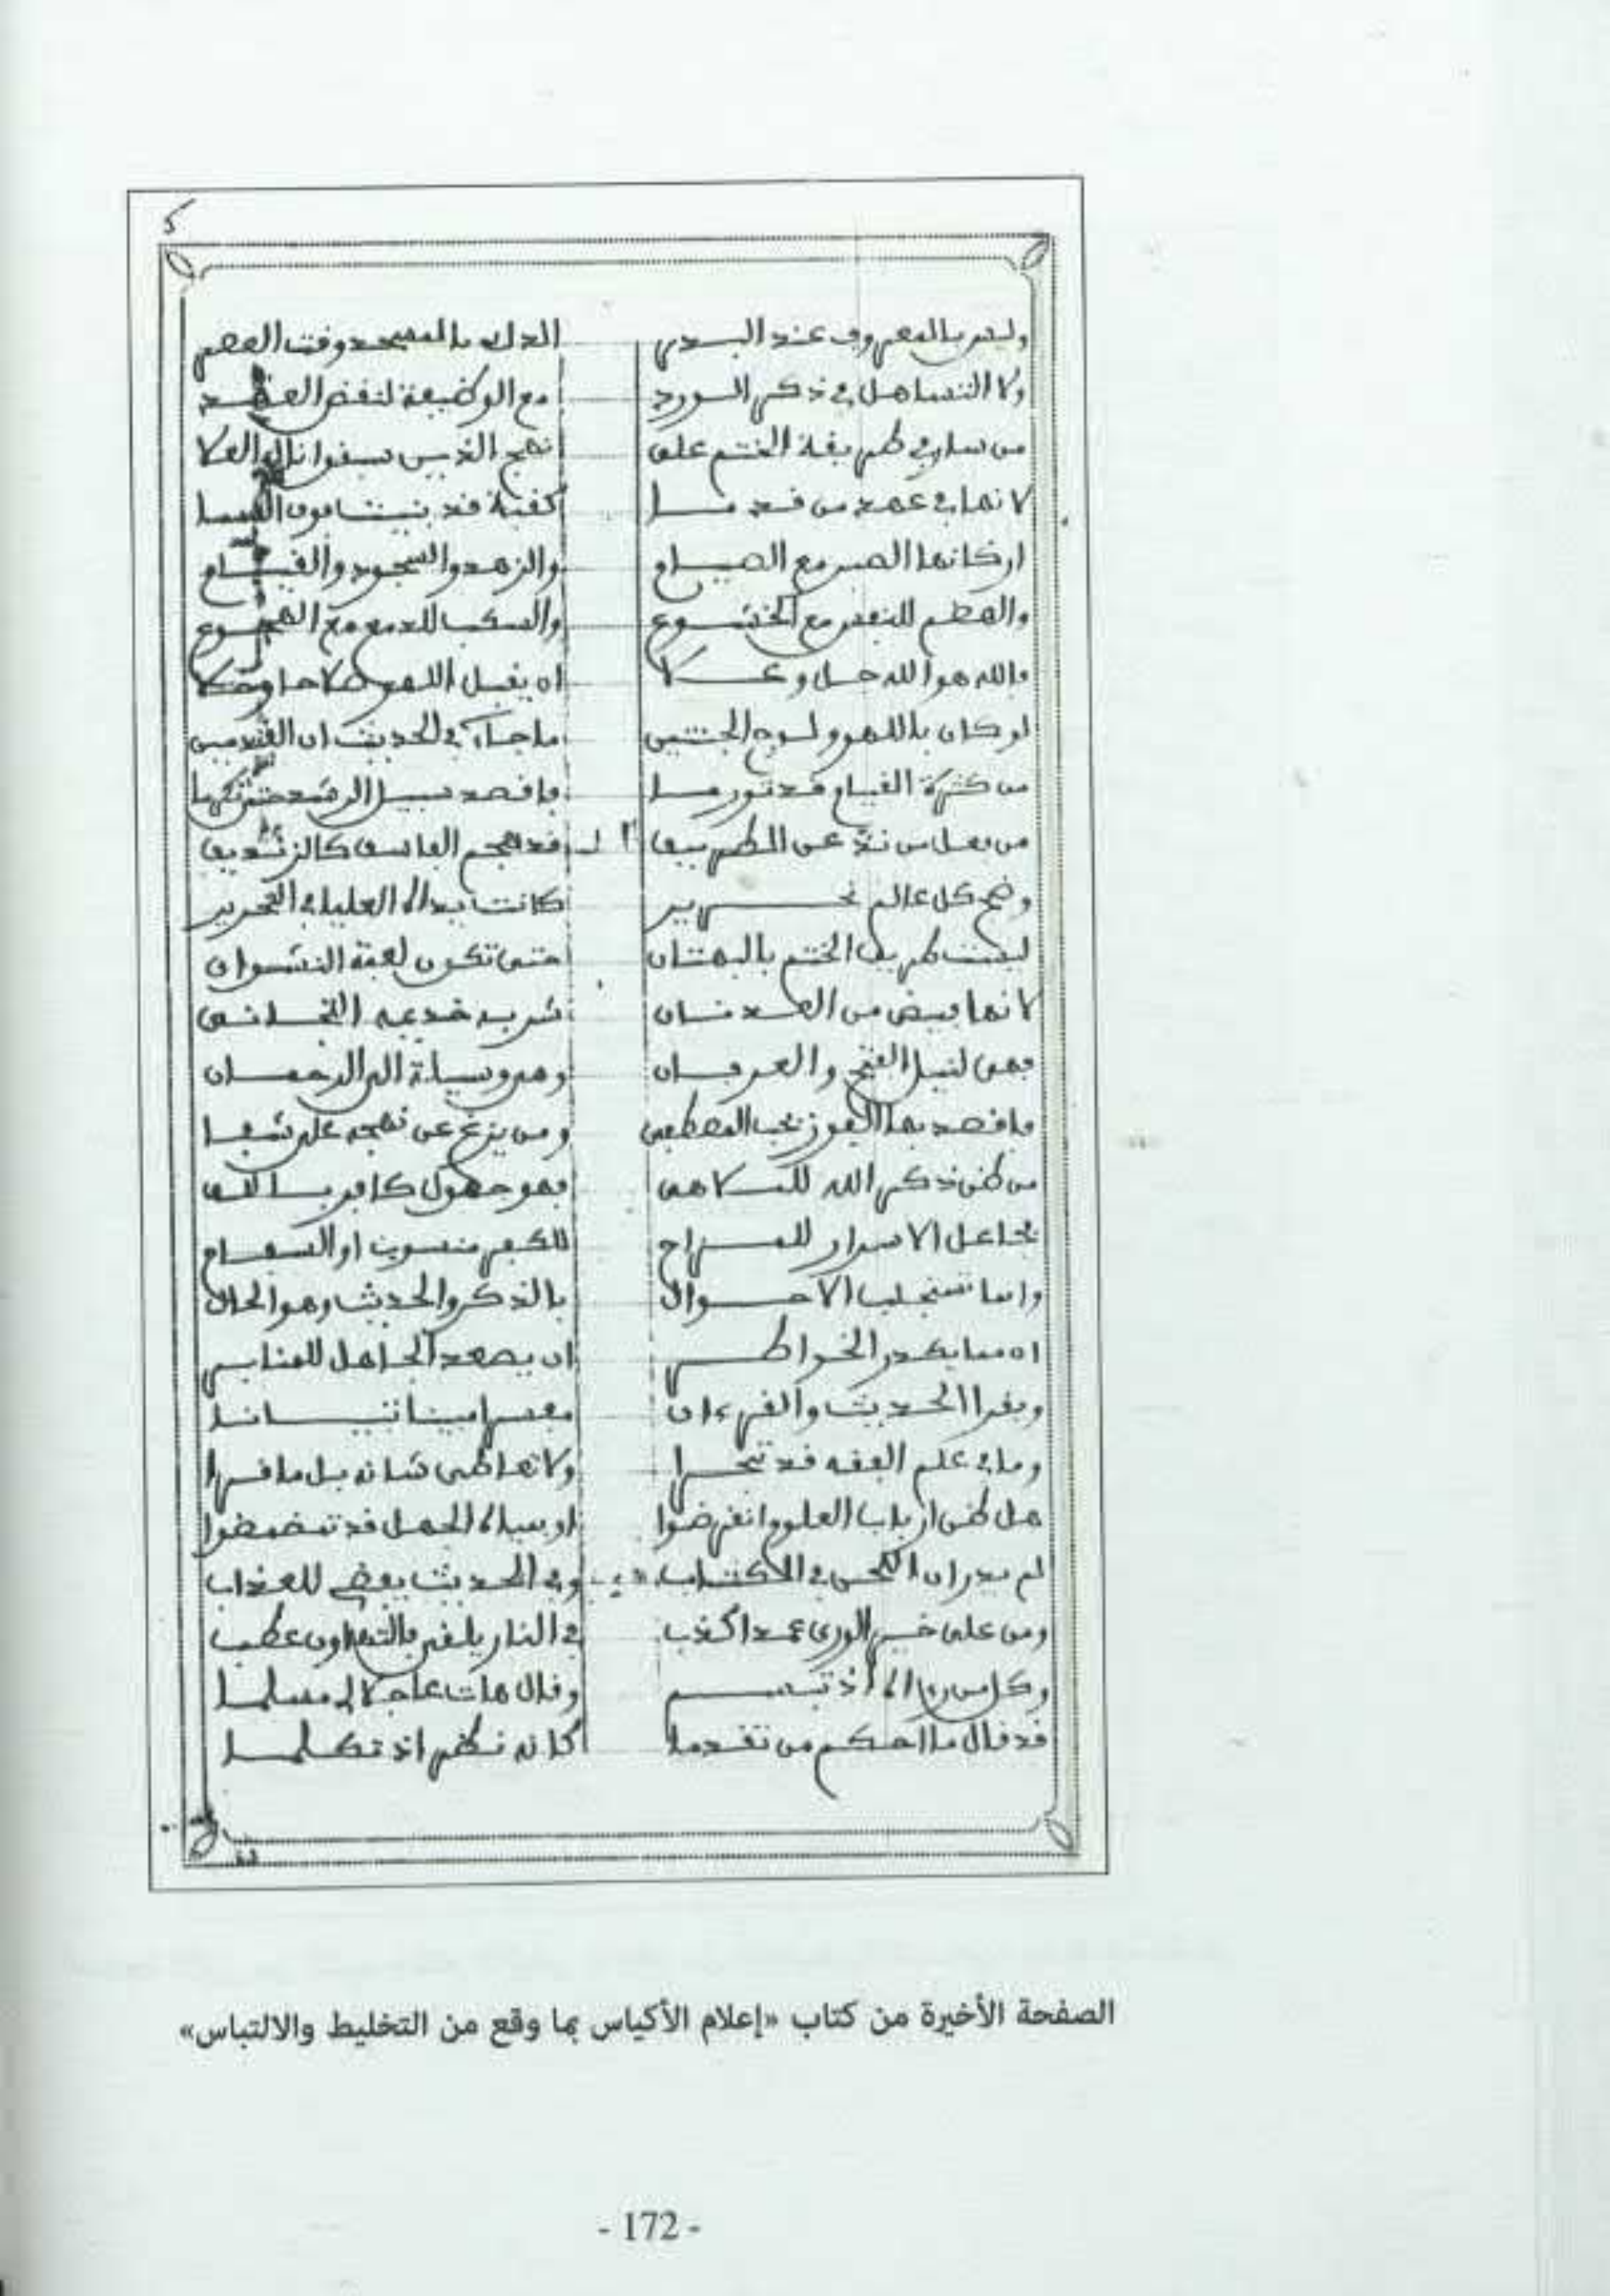 وليس بالمعروف عند البدر الدلك بالمسجد وقت العصر
ولا التساهل في ذكر الورد مع الوظيفة لنقض العهد
من سار في طريقة الختم على نهج الذين سبقوا نال العلا
لانها في عهد من قدما كفتية قد يشتامون السما
اركانها الصبر مع الصيام والزهد والسجود والقيام
والهضم للنفس مع الخشوع والسكب للدمع مع الهجوع
فالله هو الله جل وعلا ان يقبل اللهو صلاحا وحلا
لو كان باللهو ولوج الجنتين ما جاء في الحديث ان القدمين
من كثرة القيام قد تورما فاقصد سبيل الرشد حتى تكرما
من فعل من ند عن الطريق قد هجم الفاسق كالزنديق
وضم كل عالم نحرير كانت يداه العليا في التحرير
ليست طريق الختم بالبهتان حتى تكون لعبة النشوان
لانها فيض من العدنان شربه خديمه التجاني
فهي لنيل الفتح والعرفان وهي وسيلة الى الرحمان
فاقصد بها الفوز بحب المصطفى ومن يزغ عن نهجه على شفا
من ظن ذكر الله للملاهي فهو جهول كافر بالله
بجاعل الاسرار للمزاح للكفر منسوب او السفاح
وانما تستجلب الاحوال بالذكر والحديث وهو الحال
ان مما يكدر الخواطر ان يصعد الجاهل للمنابر
ويقرا الحديث والقرءان مفسرا مبينا تبيانا
وما في علم الفقه قد تبحرا ولا تعاطى شانه بل ما قرا
هل ظن ارباب العلوم انقرضوا او بمياه الجهل قد تمضمضوا
لم يدر ان اللحن في الكتاب وفي الحديث يفضي للعذاب
ومن على خير الورى عمدا كذب في النار يلقى بالتهاون عطب
وكل من راه اذ تبسم وقال هات عاجلا لي مسلما
قد قال ما احكم من تقدما كانه نظم اذ تكلما
الصفحة الأخيرة من كتاب «إعلام الأكياس بما وقع من التخليط والالتباس»
- 172 -